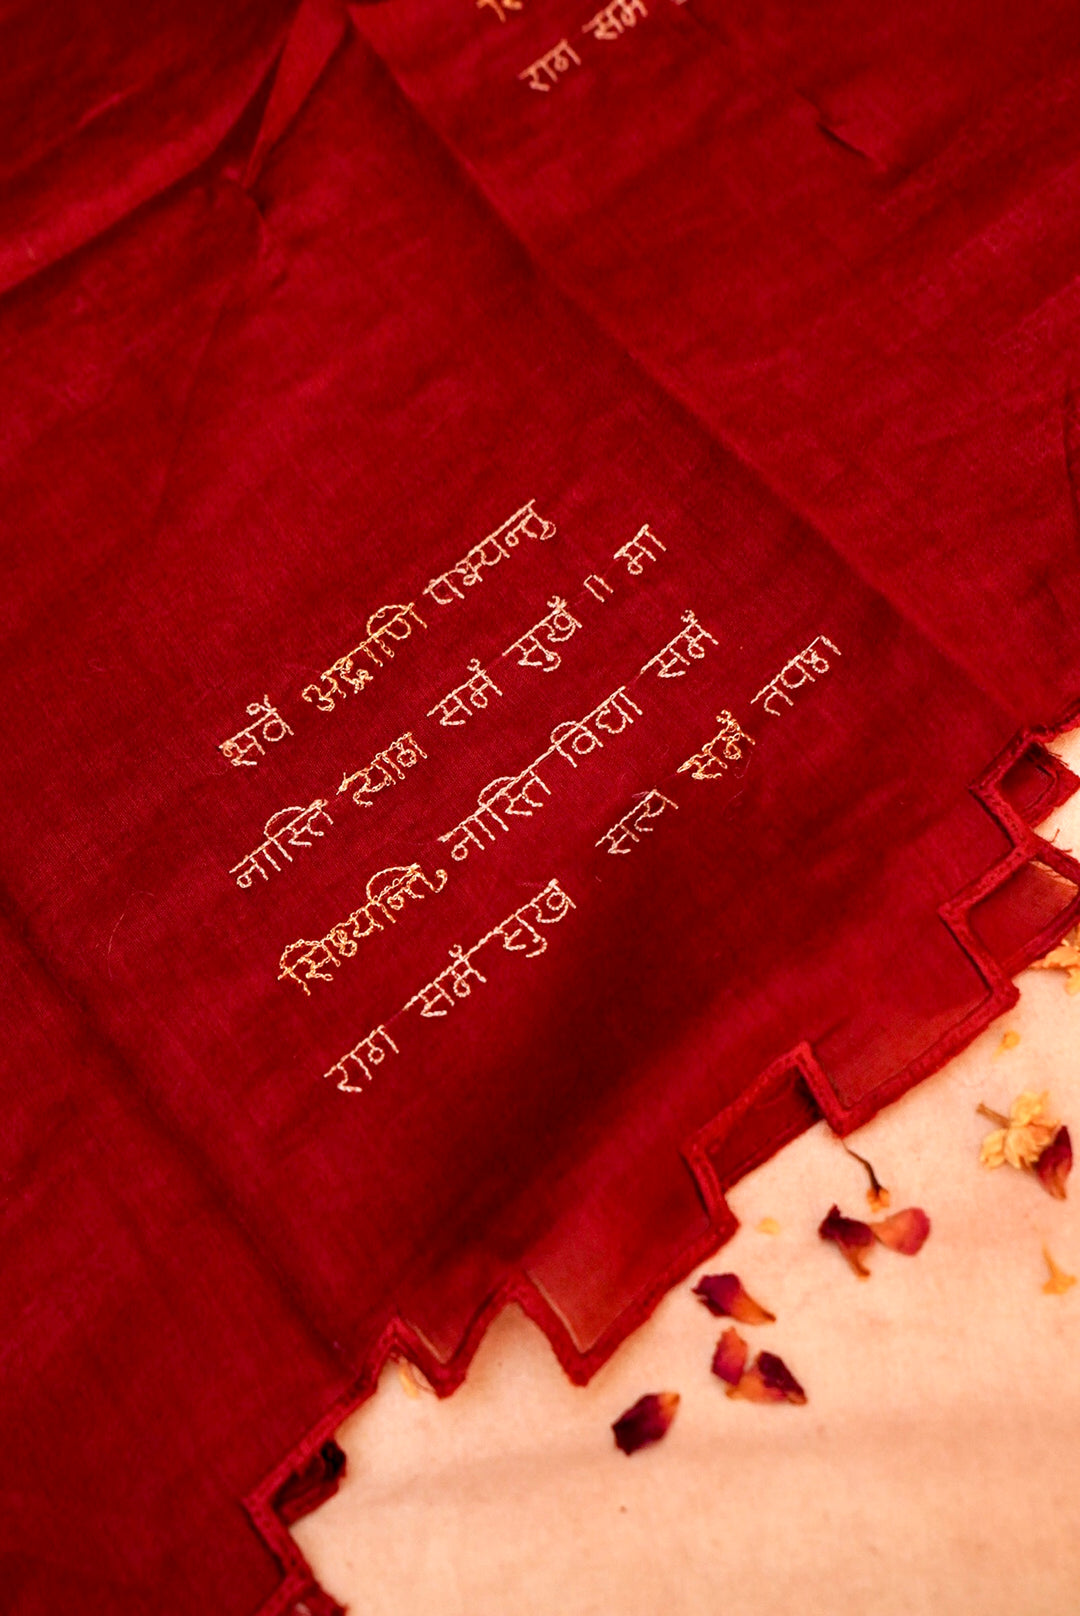 राग समं
सर्वे भद्राणि पश्यन्तु
नास्ति त्याग समं सुखं ॥ मा
सिध्यन्ति नास्ति विद्या समं
राग समं सुख सत्य समं तपश